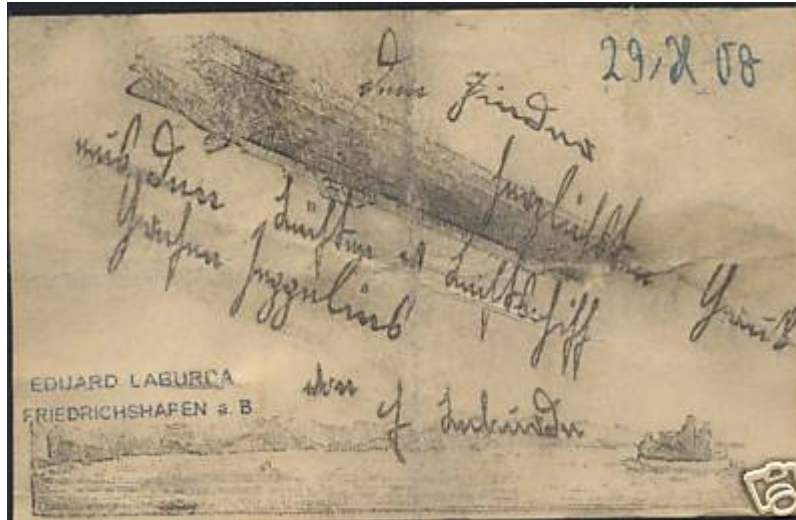 29/X 08
dem Finder
herzlichsten Gruß
aus den Lüften Luftschiff
Grafen Zeppelins
von
EDUARD LABURDA
FRIEDRICHSHAFEN a. B.